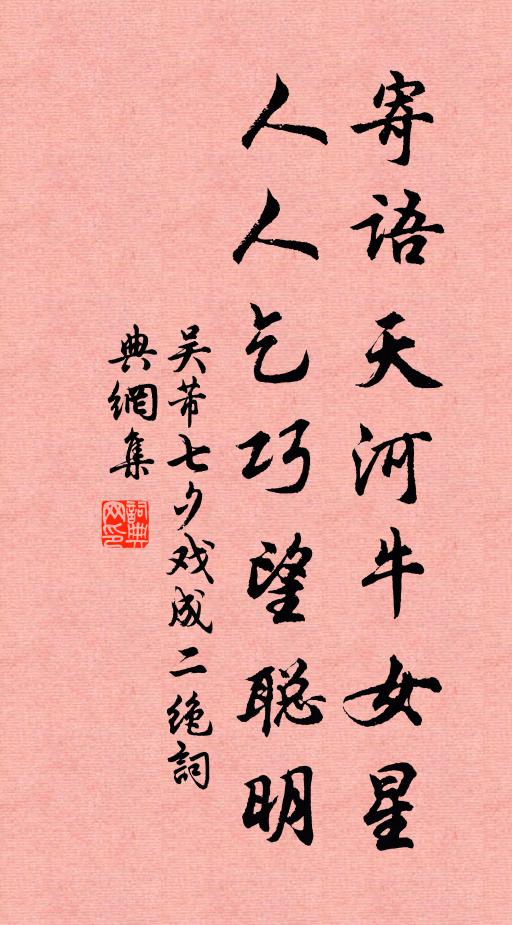 寄语天河牛女星
人人乞巧望聪明
吴芾七夕戏成二绝詞
典網集
詞典
网印